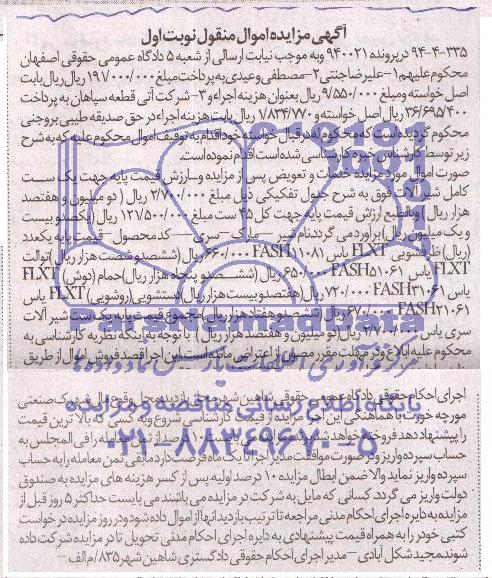 آگهی مزایده اموال منقول نوبت اول
۹۴-۴-۳۳۵ در پرونده ۹۴۰۰۲۱ و به موجب نیابت ارسالی از شعبه ۵ دادگاه عمومی حقوقی اصفهان
محکوم علیهم ۱-علیرضا جنتی ۲-مصطفی وعیدی به پرداخت مبلغ ۱۹۱/۰۰۰/۰۰۰ ریال بابت
اصل خواسته و مبلغ ۹/۵۵۰/۰۰۰ ریال بعنوان هزینه اجراء و ۳- شرکت آتی قطعه سپاهان به پرداخت
۳۶/۶۹۵/۴۰۰ ریال اصل خواسته و ۱/۸۳۴/۷۷۰ ریال بابت هزینه اجراء در حق صدیقه طیبی بروجنی
محکوم گردیده است که محکوم له در قبال خواسته خود اقدام به توقیف اموال محکوم علیه که به شرح
زیر توسط کارشناس خبره کارشناسی شده است اقدام نموده است.
صورت اموال مورد مزایده خدمات و تعویض پس از مزایده و سارزش قیمت پایه جهت یک ست
کامل شیرآلات فوق به شرح جدول تفکیکی ذیل مبلغ ۲/۷۰۰/۰۰۰ ریال (دو میلیون و هفتصد
هزار ریال) و بالطبع ارزش قیمت پایه جهت کل ۴۵ ست مبلغ ۱۲۱/۵۰۰/۰۰۰ ریال (یکصد و بیست
و یک میلیون ریال) برآورد می گردد نام شیر – مارک – سری – کد محصول – قیمت پایه یک عدد
(ریال) ظرفشویی FLXT یاس FASH۱۱۰۸۱ ۶۶۰/۰۰۰ ریال (ششصد و شصت هزار ریال) توالت
FLXT یاس FASH۵۱۰۶۱ ۶۵۰/۰۰۰ ریال (ششصد و پنجاه هزار ریال) حمام (دوش) FLXT
یاس FASH۳۱۰۶۱ ۷۲۰/۰۰۰ ریال (هفتصد و بیست هزار ریال) دستشویی (روشویی) FLXT یاس
FASH۲۱۰۶۱ ۶۷۰/۰۰۰ ریال (ششصد و هفتاد هزار ریال) مجموع قیمت پایه یک ست شیرآلات
سری یاس ۲/۷۰۰/۰۰۰ ریال (دو میلیون و هفتصد هزار ریال) با توجه به اینکه نظریه کارشناسی به
محکوم علیه ابلاغ و در مهلت مقرر مصون از اعتراض مانده است این اجرا قصد فروش اموال از طریق
اجرای احکام حقوقی دادگاه عمومی حقوقی شاهین شهر محل بازدید محل وقوع مال شهرک صنعتی
مورچه خورت با هماهنگی این اجرا مزایده از قیمت کارشناسی شروع و به کسی که بالاترین قیمت
را پیشنهاد دهد فروخته خواهد شد برنده مزایده می بایست ۱۰ درصد از ثمن معامله را فی المجلس به
حساب سپرده واریز و در صورت موافقت مدیر اجرا تا یک ماه فرصت دارد مابقی ثمن معامله را به حساب
سپرده واریز نماید والا ضمن ابطال مزایده ۱۰ درصد اولیه پس از کسر هزینه های مزایده به صندوق
دولت واریز می گردد. کسانی که مایل به شرکت در مزایده می باشند می بایست حداکثر ۵ روز قبل از
مزایده به دایره اجرای احکام مدنی مراجعه تا ترتیب بازدید آنها از اموال داده شود و در روز مزایده درخواست
کتبی خود را به همراه قیمت پیشنهادی به دایره اجرای احکام مدنی تحویل تا در مزایده شرکت داده
شوند. مجید شکل آبادی – مدیر اجرای احکام حقوقی دادگستری شاهین شهر ۸۳۵/م الف –
ParsNamadData
مرکز فرآوری اطلاعات پارس نماد داده ها
پایگاه اطلاع رسانی مناقصه و مزایده
۰۲۱-۸۸۳۴۹۶۷۰-۵